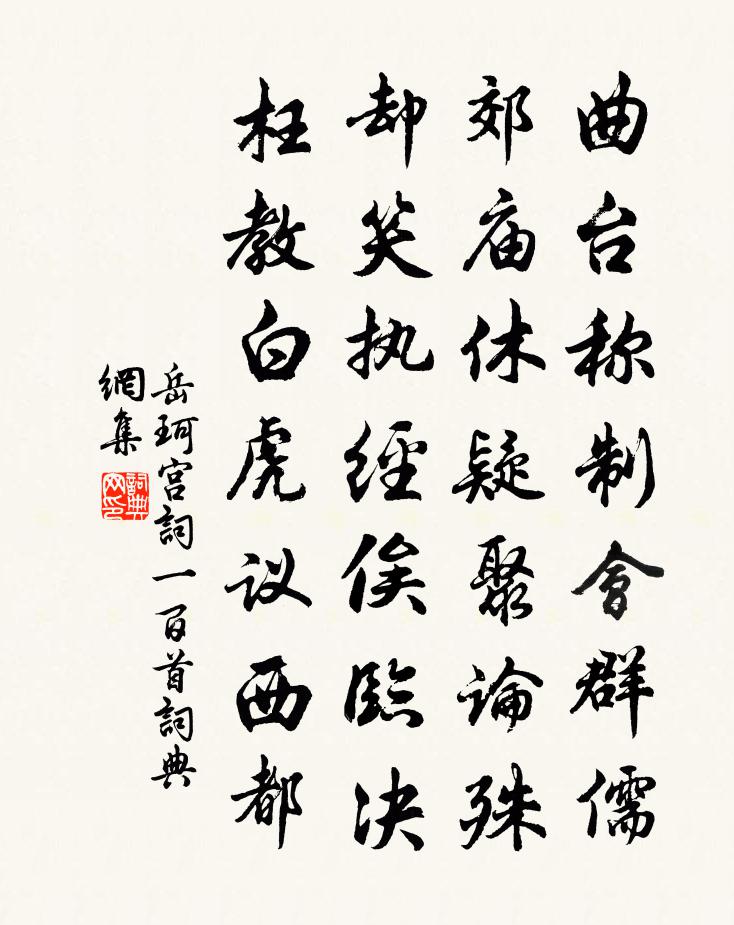 曲台称制會群儒
郊庙休疑聚論殊
却笑执經俟臨决
枉教白虎议西都
岳珂宫詞一百首詞典
網集
詞典
网印